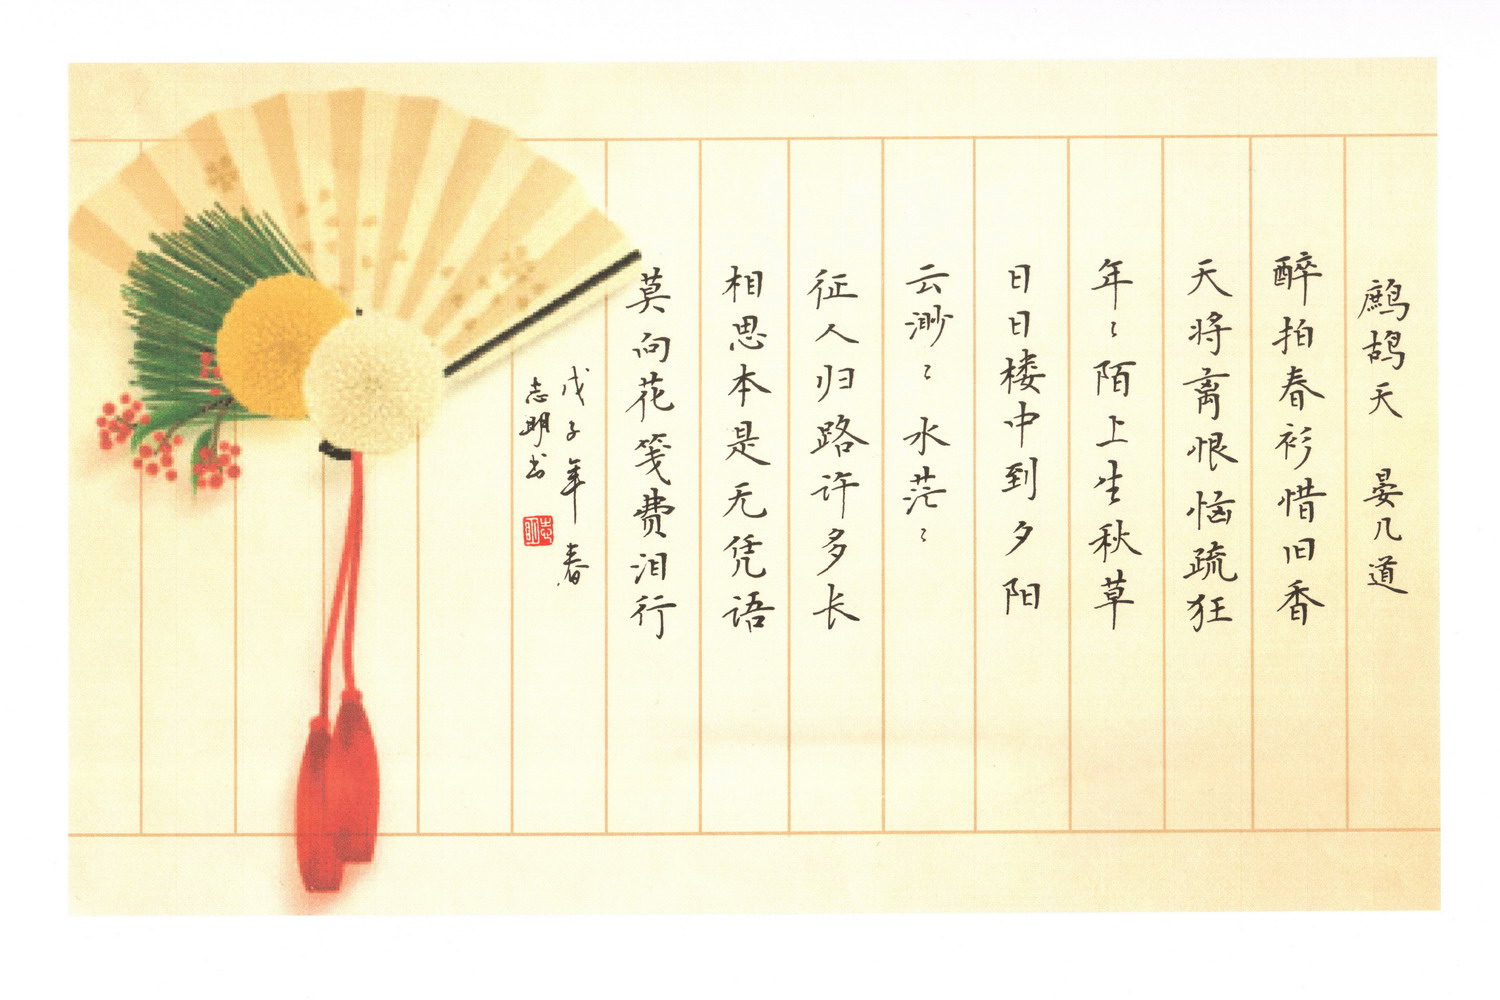 鹧鸪天 晏几道
醉拍春衫惜旧香
天将离恨恼疏狂
年〻陌上生秋草
日日楼中到夕阳
云渺〻水茫〻
征人归路许多长
相思本是无凭语
莫向花笺费泪行
戊子年春
志明书
志明